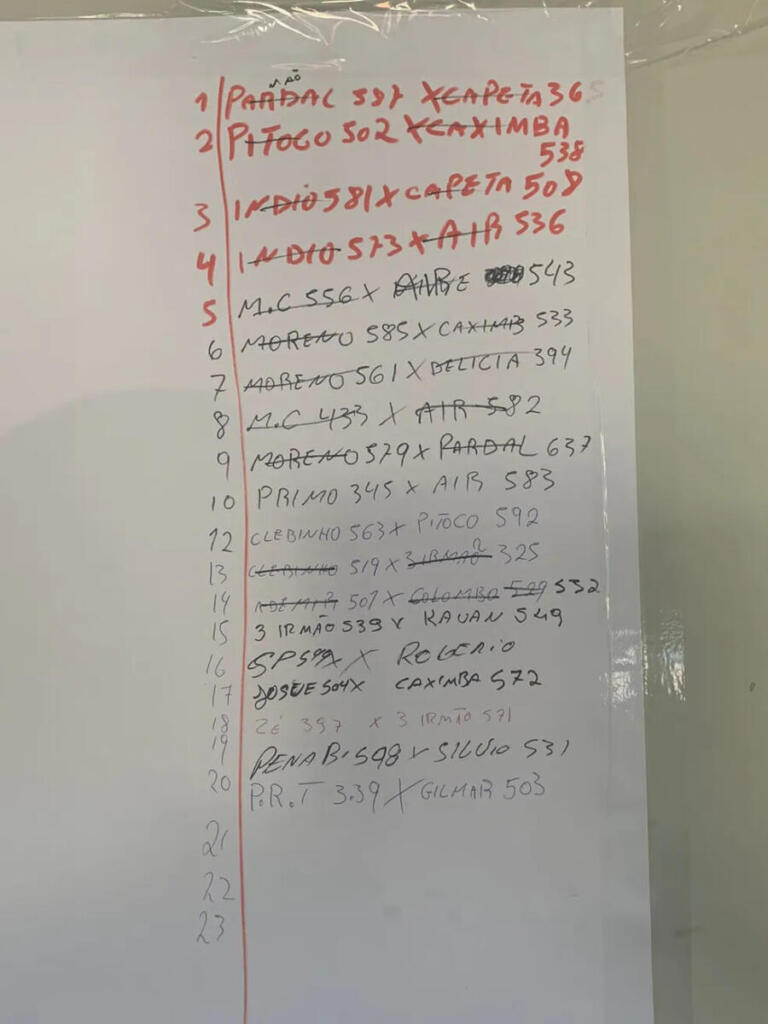 MÃO
1 PARDAL 597 X CAPETA 365
2 PITOCO 502 X CAXIMBA
538
3 INDIO 581 X CAPETA 508
4 INDIO 573 X AIR 536
5 M.C 556 X 543
6 MORENO 585 X CAXIMB 533
7 MORENO 561 X DELICIA 394
8 M.C 433 X AIR 582
9 MORENO 579 X PARDAL 637
10 PRIMO 345 X AIR 583
12 CLEBINHO 563 X PITOCO 592
13 CLEBINHO 519 X 3 IRMAO 325
14 ADEMIR 507 X COLOMBO 529 532
15 3 IRMÃO 539 X KAUAN 549
16 SP 599 X ROGERIO
17 JOSUE 504 X CAXIMBA 572
18 ZÉ 397 X 3 IRMÃO 571
19 PENA B. 598 X SILVIO 531
20 P.R.T 3.39 X GILMAR 503
21
22
23